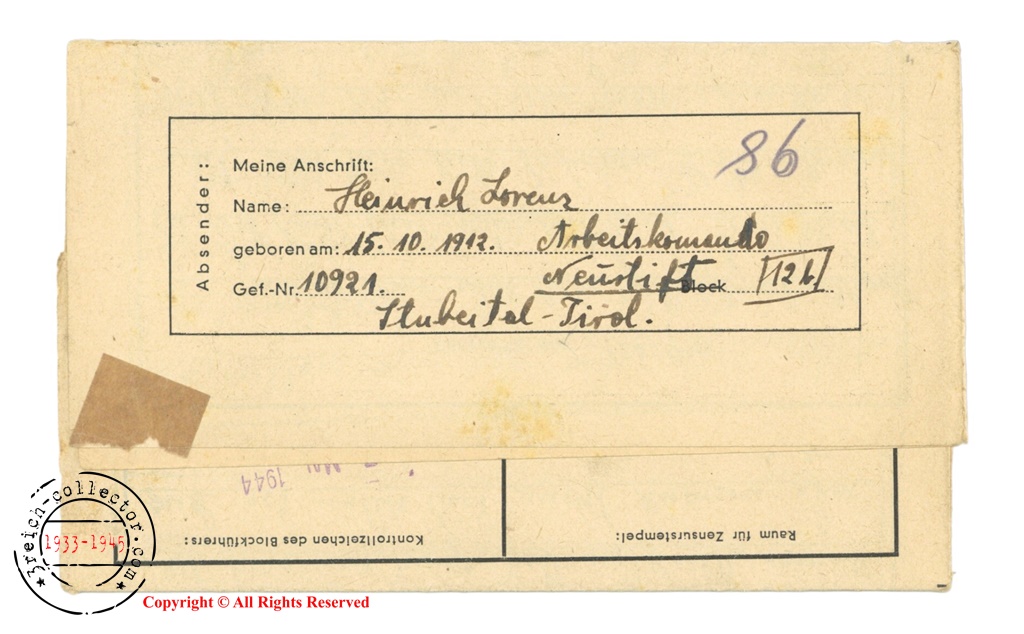 86
Absender:
Meine Anschrift:
Name: Heinrich Lorenz
geboren am: 15. 10. 1912. Arbeitskomando
Gef.-Nr. 10921. Neustift Block 12 b
Stubeital - Tirol.
Mai 1944
Kontrollzeichen des Blockführers:
Raum für Zensurstempel:
3reich-collector.com
1933-1945
Copyright © All Rights Reserved